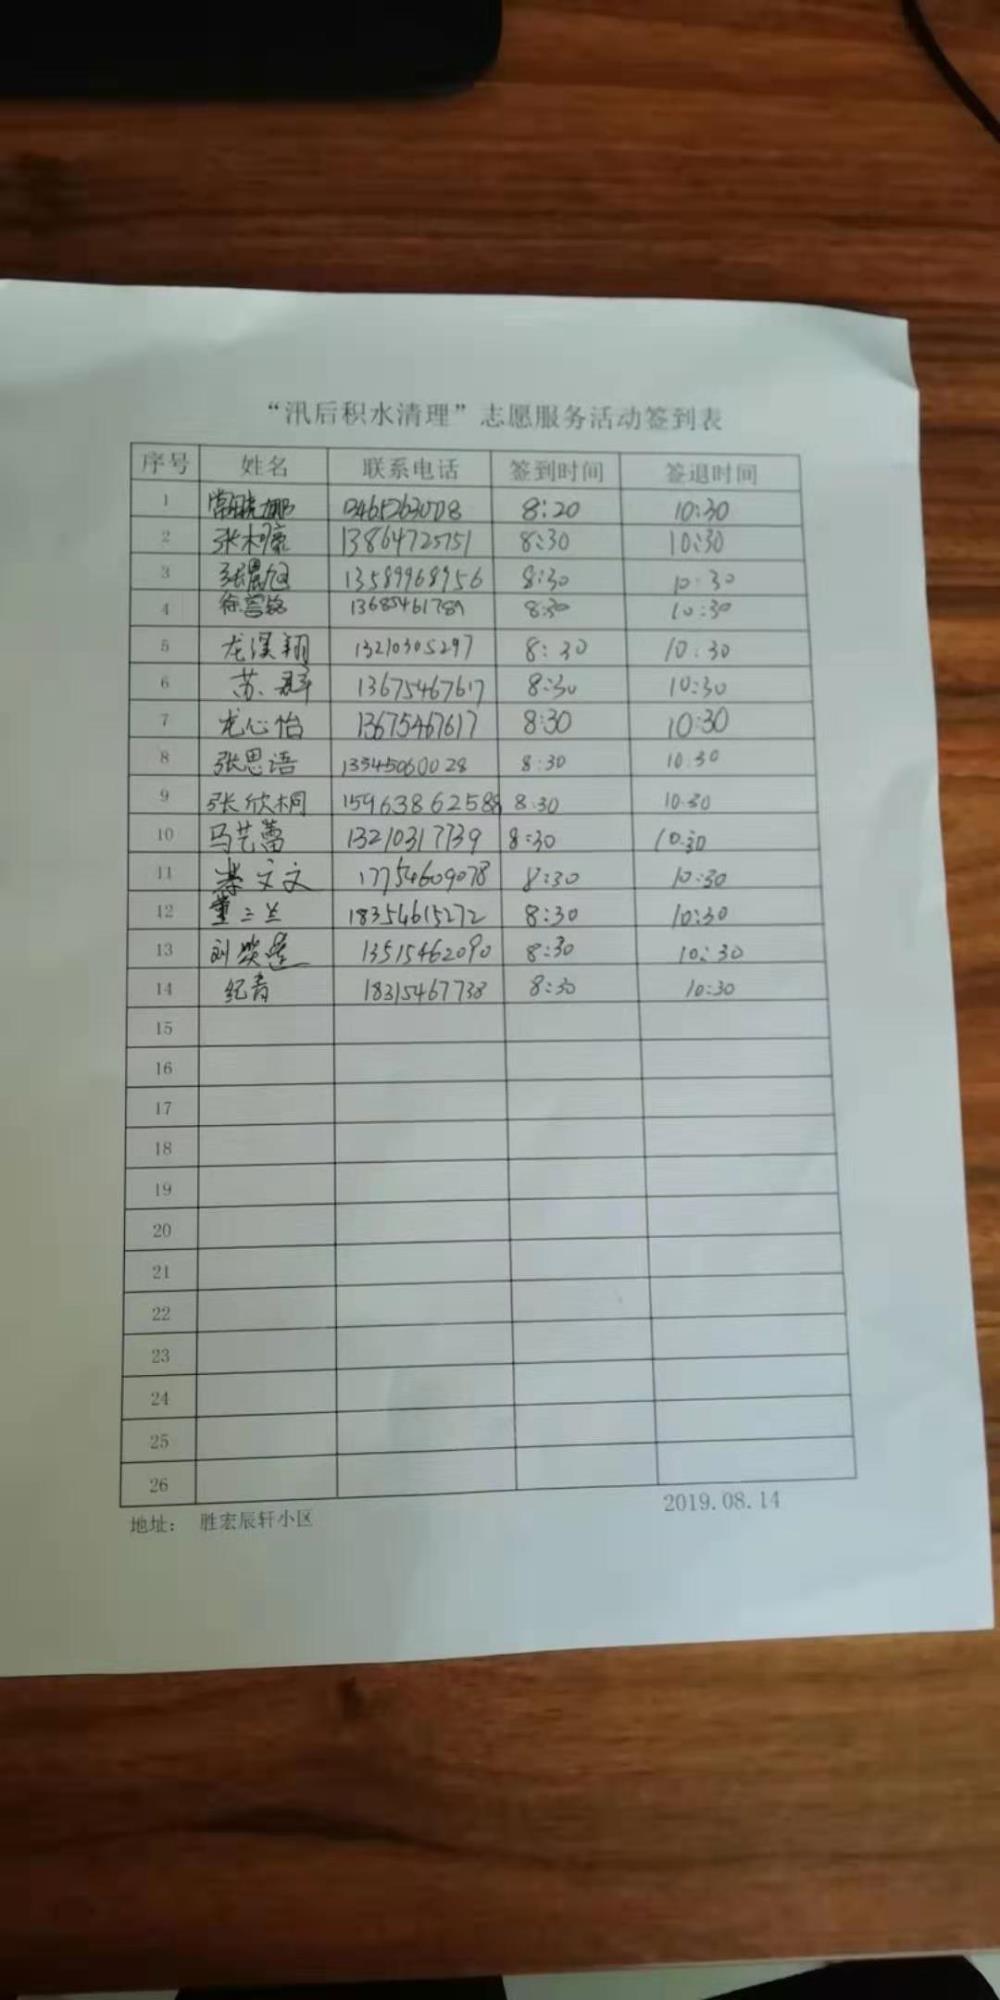 “汛后积水清理”志愿服务活动签到表
序号 姓名 联系电话 签到时间 签退时间
1 8:20 10:30
2 13864725751 8:30 10:30
3 张晨旭 13589968956 8:30 10:30
4 13685461789 8:30 10:30
5 龙溪翔 13210305297 8:30 10:30
6 苏 13675467617 8:30 10:30
7 龙心怡 13675467617 8:30 10:30
8 张思语 13345060028 8:30 10.30
9 张欣桐 15963862588 8.30 10.30
10 马艺蕾 13210317739 8:30 10:30
11 文文 17754609078 8:30 10:30
12 董三兰 18354615272 8:30 10:30
13 刘 13515462090 8:30 10:30
14 纪青 18315467738 8:30 10:30
15
16
17
18
19
20
21
22
23
24
25
26
地址： 胜宏辰轩小区 2019.08.14